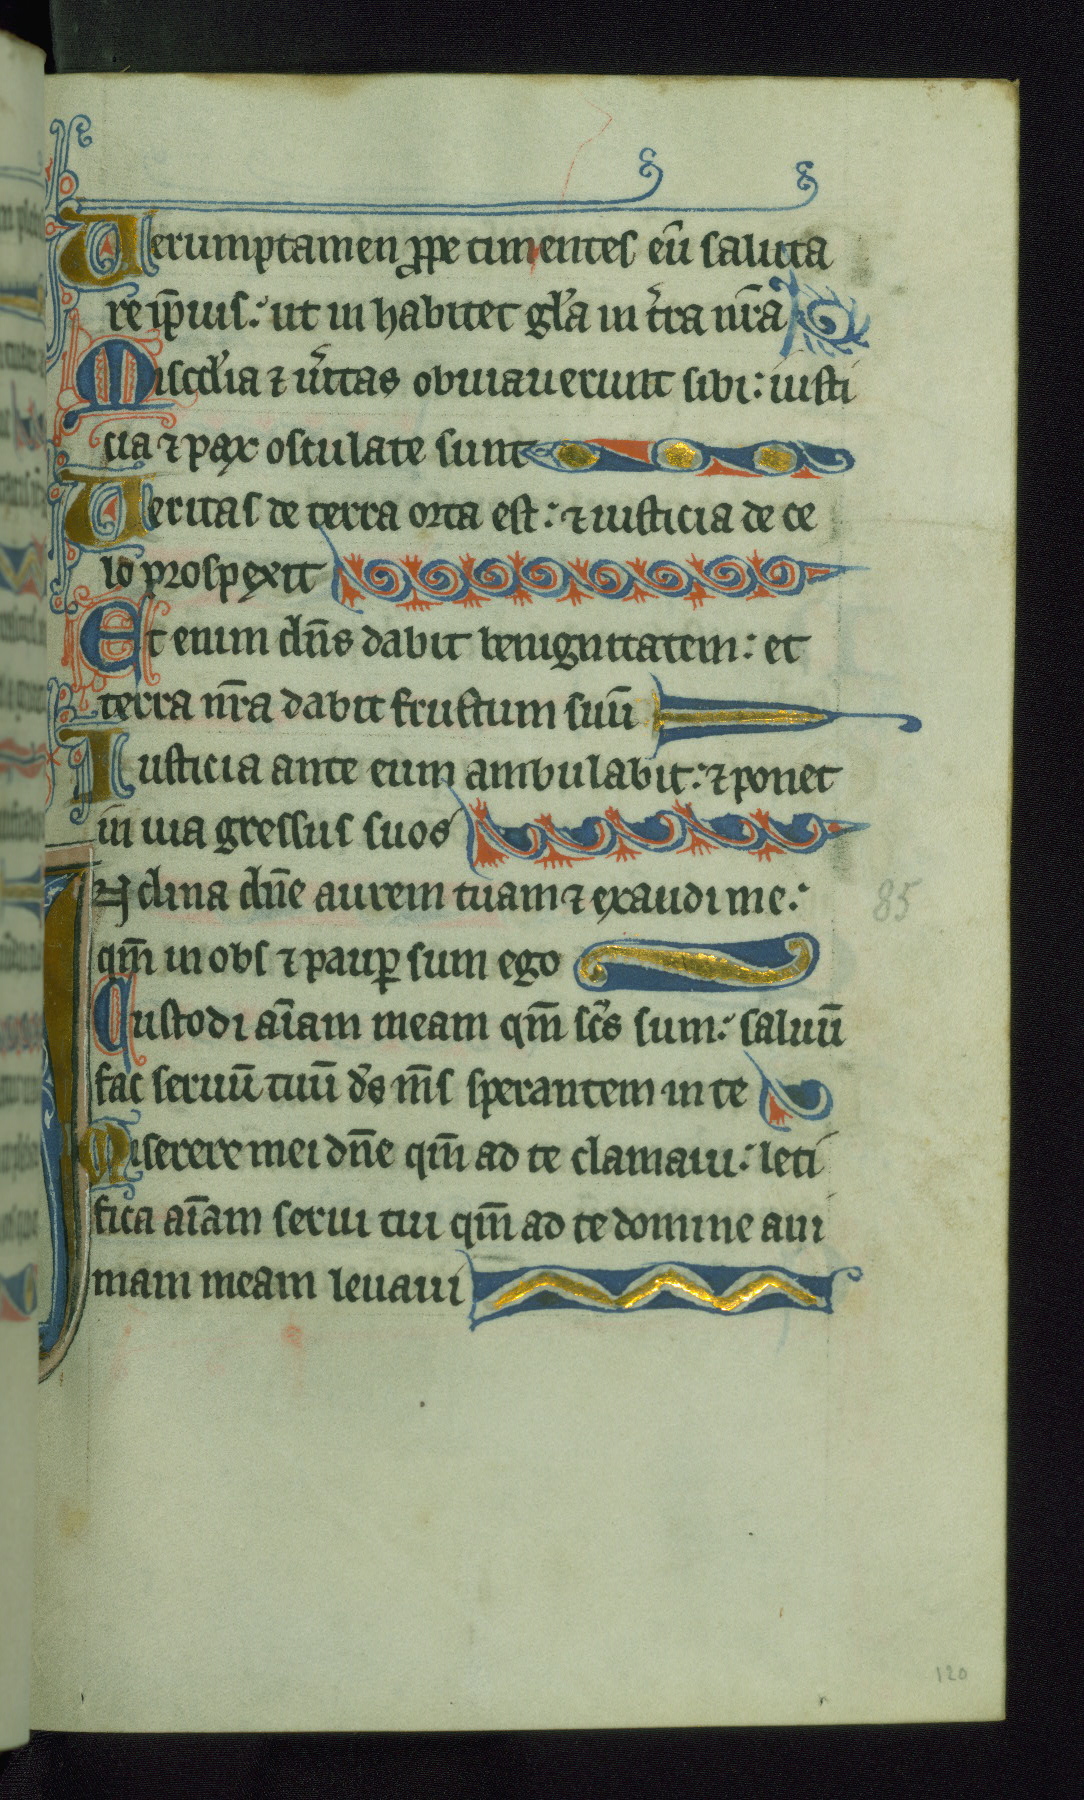 Uerumptamen ꝓpe timentes eū saluta
re ip̄ius: ut in habitet gl̓a in t̓ra nr̄a
Miscd̓ia ⁊ u̓itas obuiauerunt sibi: iusti
cia ⁊ pax osculate sunt
Ueritas de terra orta est: ⁊ iusticia de ce
lo prospexit
Et enim dn̄s dabit benignitatem: et
terra nr̄a dabit fructum suū
Iusticia ante eum ambulabit: ⁊ ponet
in uia gressus suos
INclina dn̄e aurem tuam ⁊ exaudi me:
85
qm̄ inobs ⁊ paup̱ sum ego
Custodi aīam meam qm̄ sc̄s sum: saluū
fac seruū tuū d̓s m̄s sperantem in te
Miserere mei dn̄e qm̄ ad te clamaui: leti
fica aīam serui tui qm̄ ad te domine ani
mam meam leuaui
120